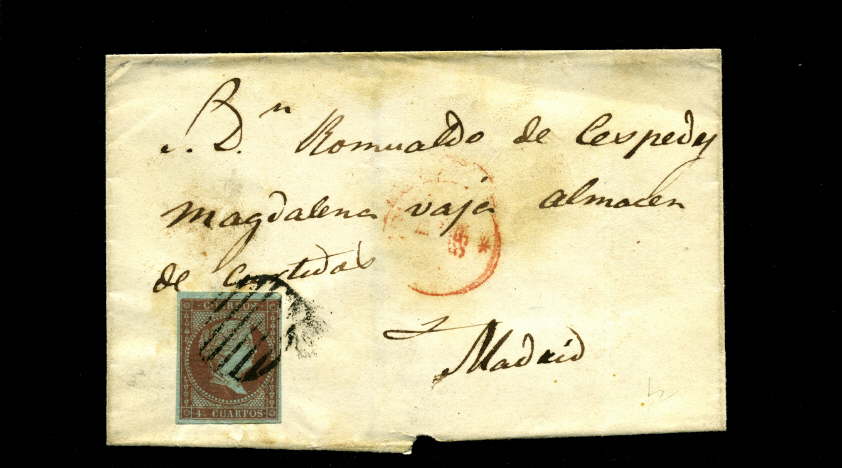 S. Dⁿ Romualdo de Cespedes
Magdalena vaja almacen
de Curtidos
Madrid
CORREOS
4 CUARTOS